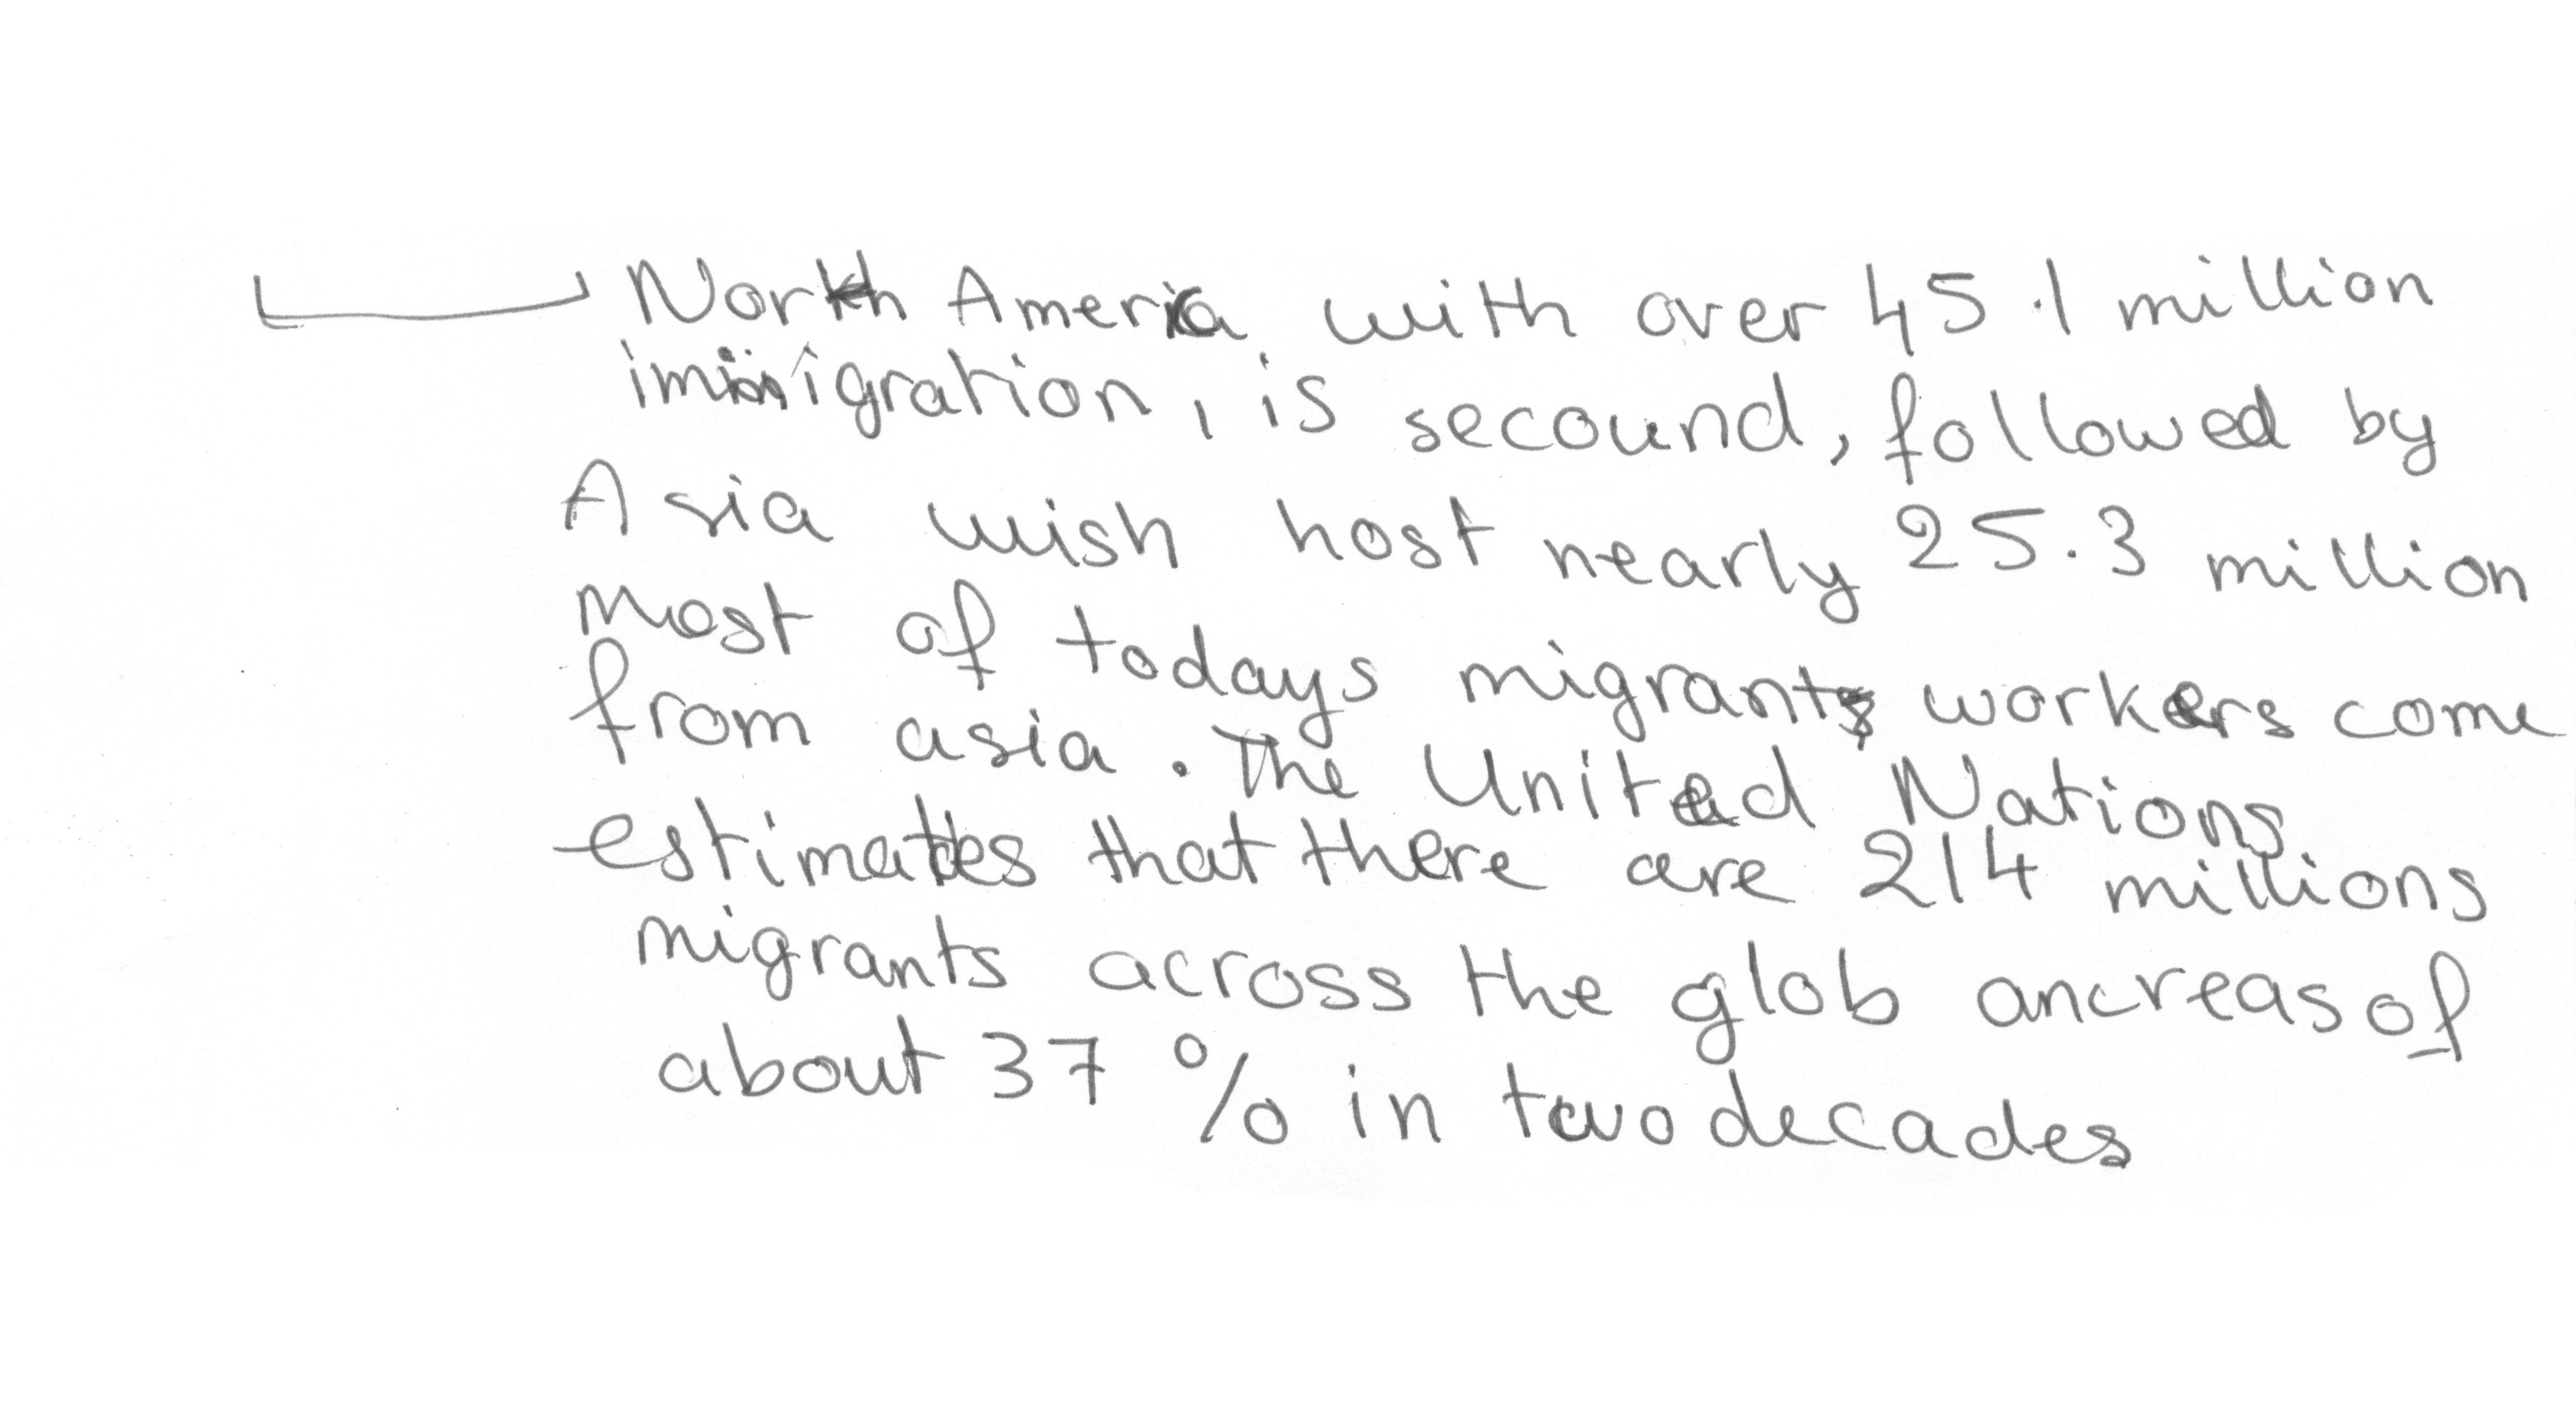 North America, with over 45.1 million
immigration, is secound, followed by
Asia wish host nearly 25.3 million
most of todays migrants workers come
from asia. The United Nations
estimates that there are 214 millions
migrants across the glob ancreas of
about 37 % in two decades